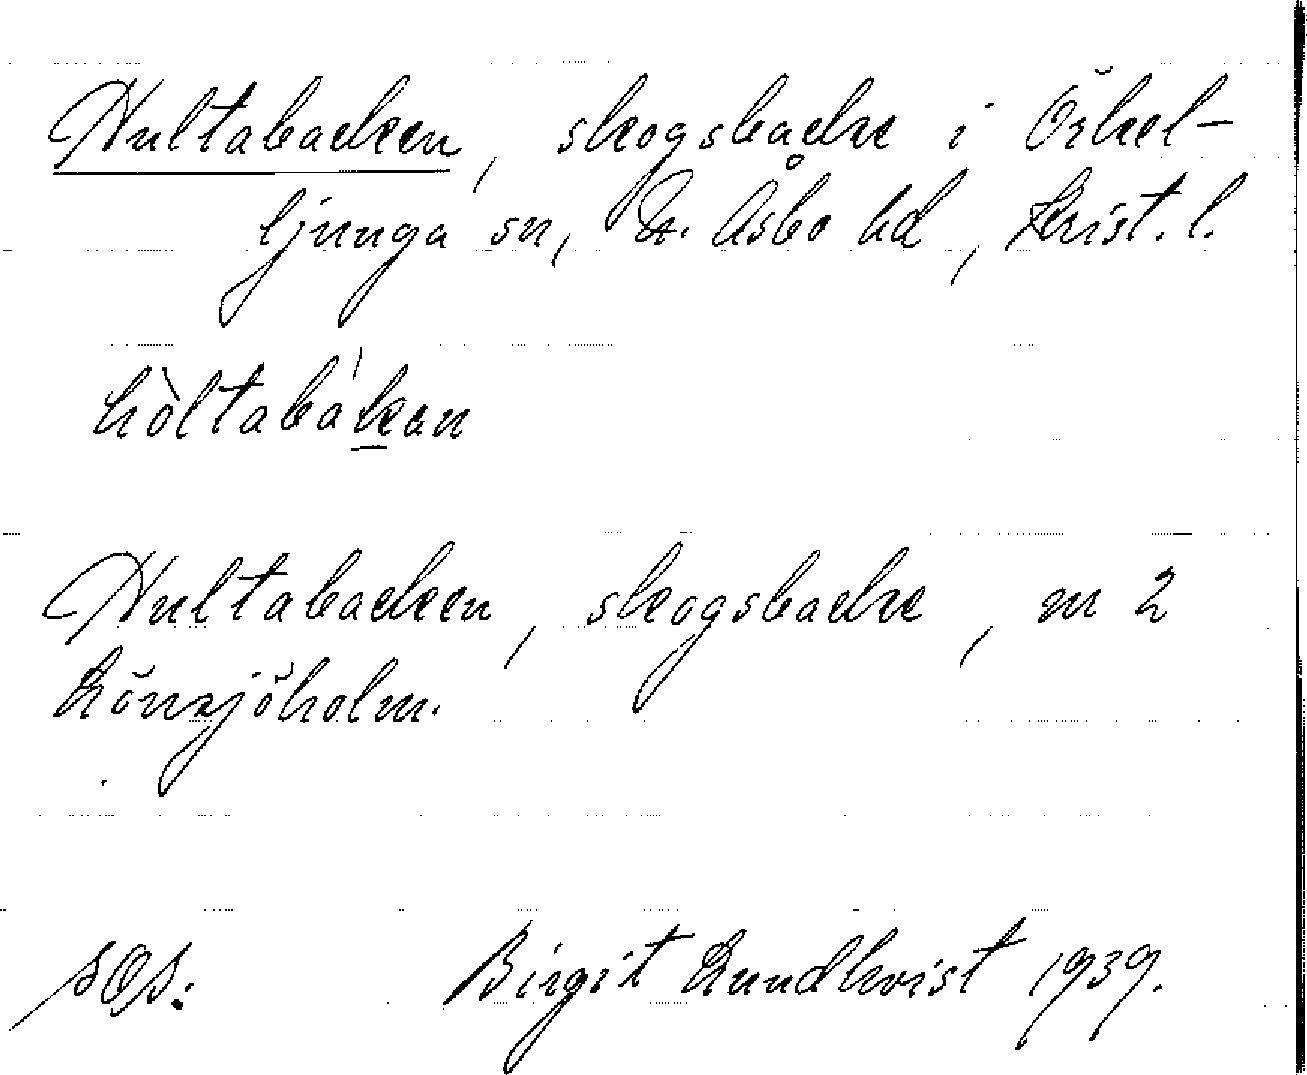 Hultabacken, skogsbacke i Örkel-
ljunga sn, N. Åsbo hd, Krist. l.
hòltabákan
Hultabacken, skogsbacke, nr 2
Lönsjöholm.
SOS. Birgit Lundkvist 1939.